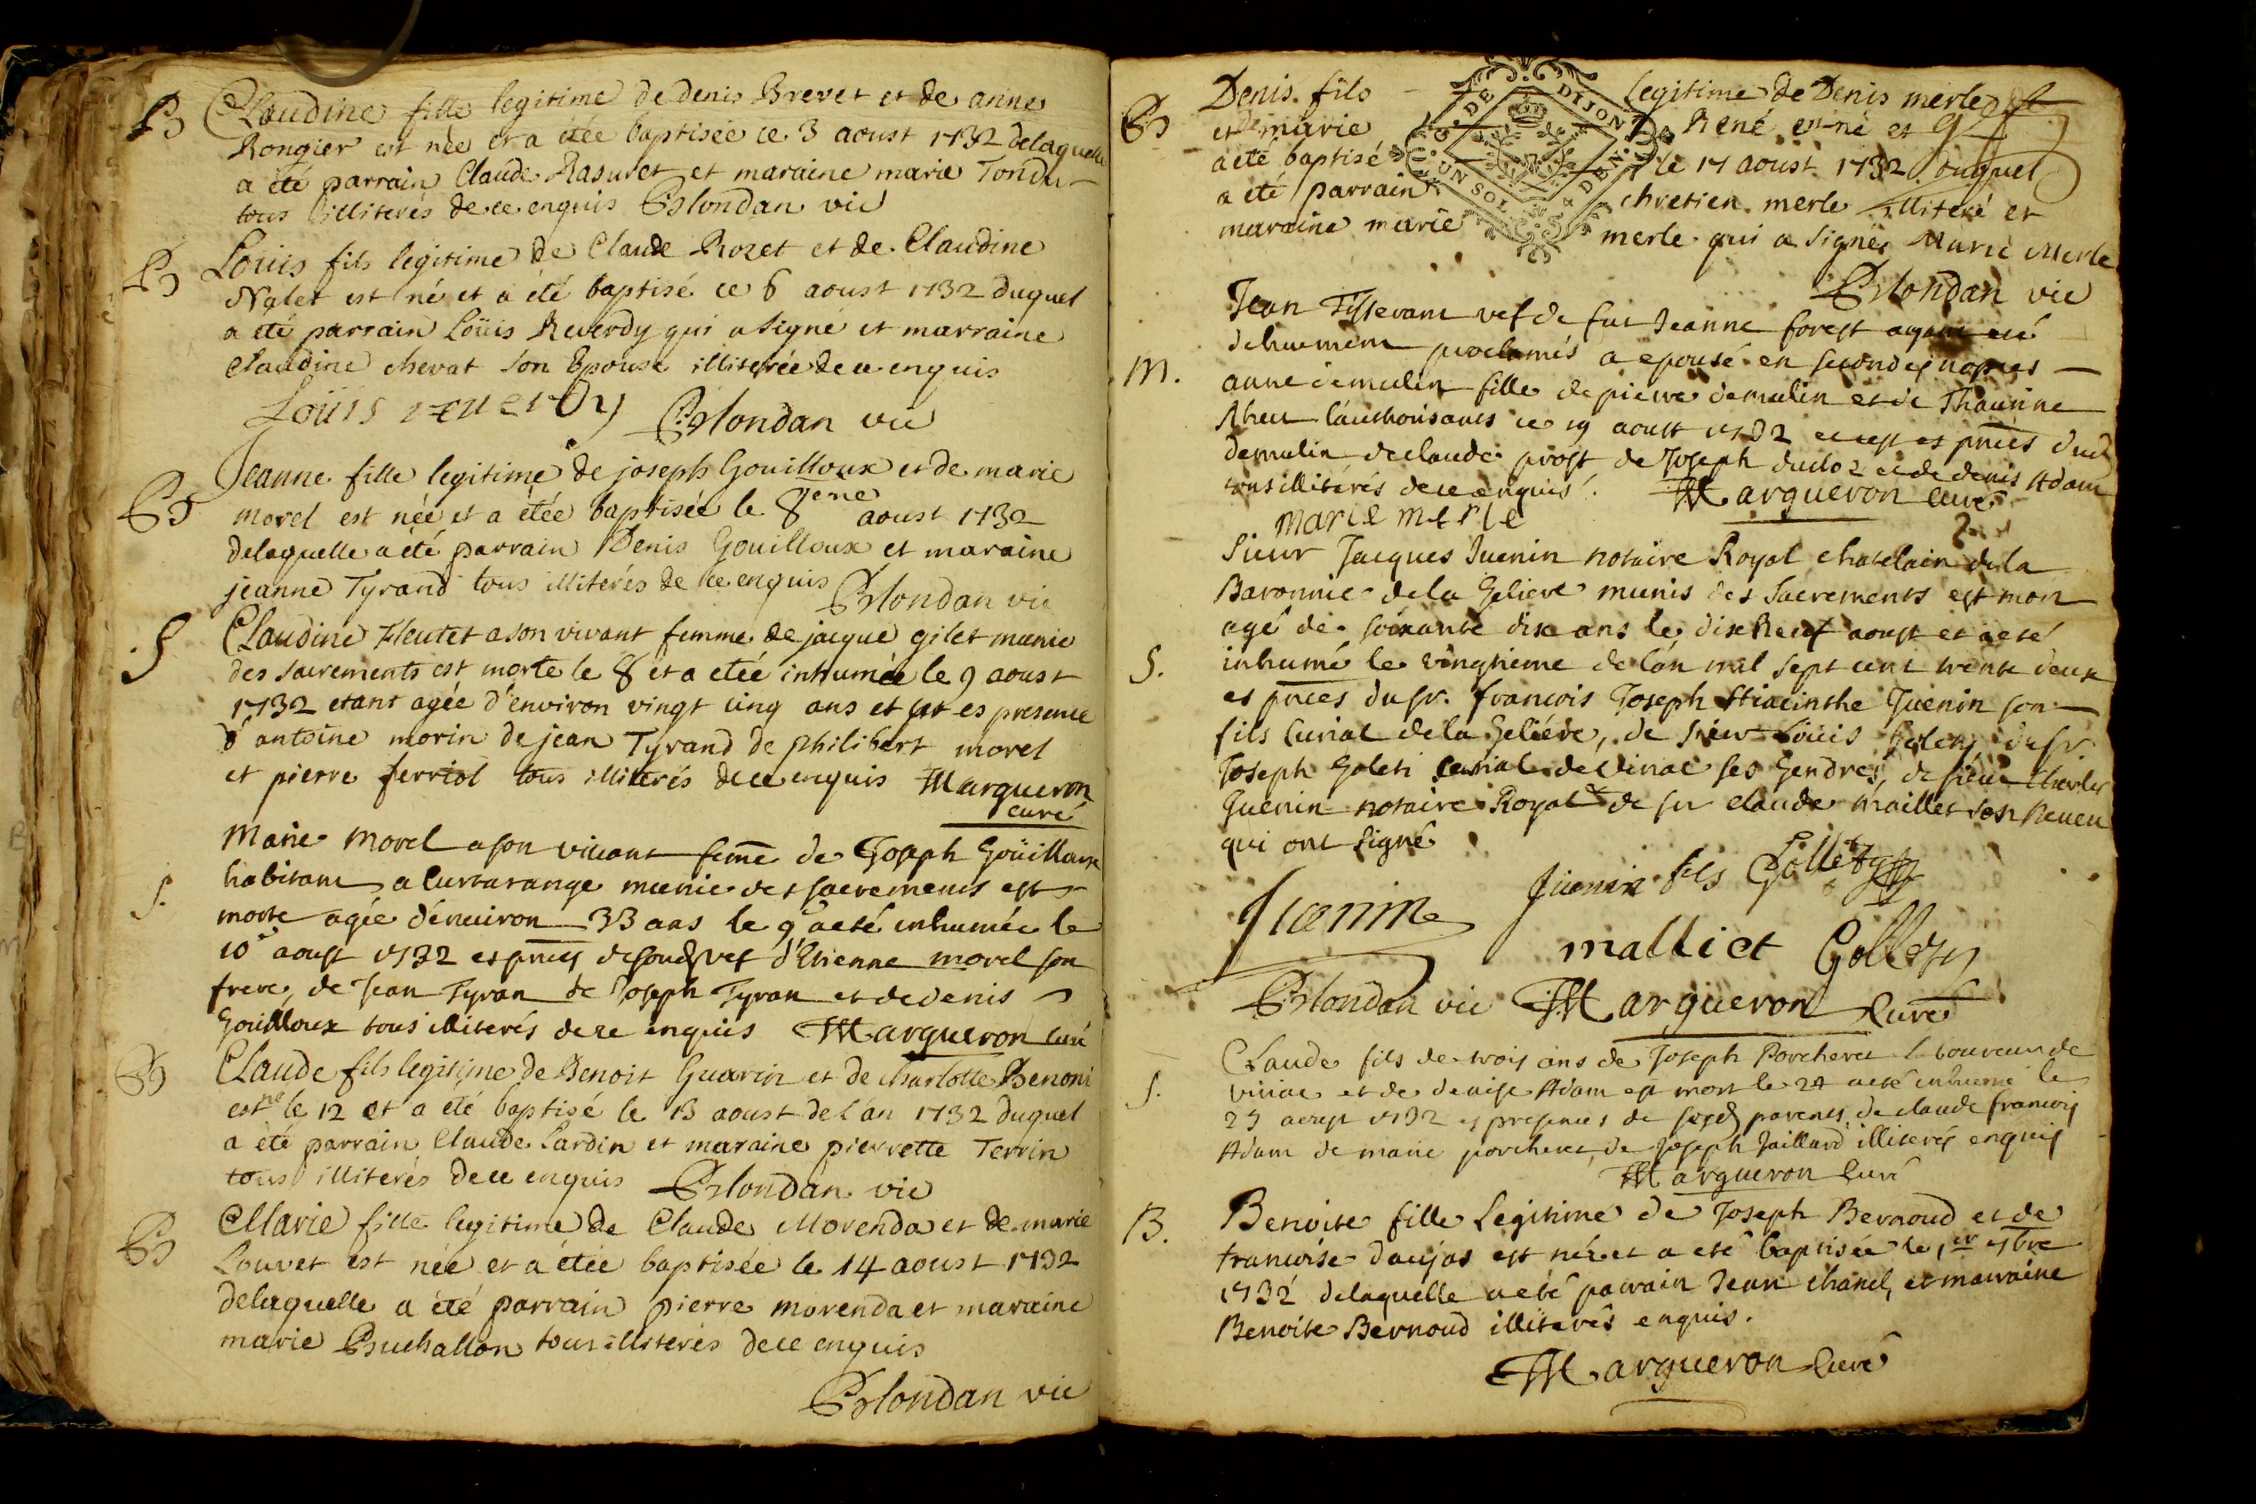 B Claudine fille legitime de denis Brevet et de anne
Rongier est née et a étée baptisée ce 3 aoust 1732 delaquelle
a été parrain Claude Rasuret et maraine marie Tondu
tous illiterés de ce enquis Blondan vic
B Loüis fils legitime de Claude Rozet et de Claudine
Nalet est né et a été baptisé ce 6 aoust 1732 duquel
a été parrain Loüis Reverdy qui a signé et marraine
Claudine chevat son Epouse illiterée de ce enquis
Loüis reverdy Blondan vic
B Jeanne fille legitime de joseph Gouilloux et de marie
morel est née et a étée baptisée le 8eme aoust 1732
delaquelle a été parrain Denis Gouilloux et maraine
jeanne Tyrand tous illiterés de ce enquis Blondan vic
S Claudine Fleutet a son vivant femme de jacque gilet munie
des sacrements est morte le 8 et a etée inhumée le 9 aoust
1732 etant agée d'environ vingt cinq ans et es presence
d'antoine morin de jean Tyrand de philibert morel
et pierre ferriol tous illiterés de ce enquis Margueron
curé
S. Marie Morel a son vivant feme de Joseph Goüilloux
habitant a Curtarange munie des sacrements est
morte agée d'environ 33 ans le 9 a eté inhumée le
10e aoust 1732 es pnces de vef d'Etienne morel son
frere, de Jean Tyran de Joseph Tyran et de denis
Gouilloux tous illiterés de ce enquis Margueron curé
B Claude fils legitime de Benoit Guarin et de charlotte Benoni
est né le 12 et a été baptisé le 13 aoust de l'an 1732 duquel
a été parrain Claude Lardin et maraine pierrette Terrin
tous illiterés de ce enquis Blondan vic
B Marie fille legitime de Claude Morenda et de marie
Louvet est née et a étée baptisée le 14 aoust 1732
delaquelle a été parrain pierre morenda et maraine
marie Buchallon tous illiterés de ce enquis
Blondan vic
B Denis fils legitime de Denis merle
et de marie René est né et
a eté baptisé le 17 aoust 1732 duquel
a été parrain chretien merle illiteré et
maraine marie merle qui a signée Marie Merle
G. DE DIJON
UN SOL 4 DEN.
Blondan vic
M. Jean Tisserant vef de fut Jeanne forest ayant eté
dehuement proclamés a epousé en secondes nopces
anne demulin fille de pierre demulin et de Thaurine
l'authorisants ce 19 aoust 1732 es pnces dud
demulin de claude prost de Joseph ducloz et de denis Adam
tous illiterés de ce enquis. Margueron curé
marie merle
S. Sieur Jacques Juenin notaire Royal chatelain de la
Baronnie de la Geliere munis des Sacrements est mort
agé de soixante dix ans le dix neuf aoust et a eté
inhumé le vingtieme de l'an mil sept cent trente deux
es pnces du sr. francois Joseph Hiacinthe Juenin son
fils Curial de la Geliére, de sieur Loüis Golety du sr
Joseph Goleti curial de Viriac ses Gendres, de sieur Charles
Guenin notaire Royal & de sr claude Maillet son Neveu
qui ont signé
Juenin Juenin fils Gollety
malliet Gollety
Blondan vic Margueron Curé
S. Claude fils de trois ans de Joseph Porcheret laboureur de
viriac et de denise Adam est mort le 24 a eté inhumé le
25 aoust 1732 es presences de sesd parents, de claude francois
Adam de marie porcheret, de Joseph Jaillard illiterés enquis
Margueron Curé
B. Benoite fille Legitime de Joseph Bernoud et de
francoise daujas est née et a eté baptisée le 1er 7bre
1732 delaquelle a eté parrain Jean chanel, et marraine
Benoite Bernoud illiterés enquis.
Margueron Curé